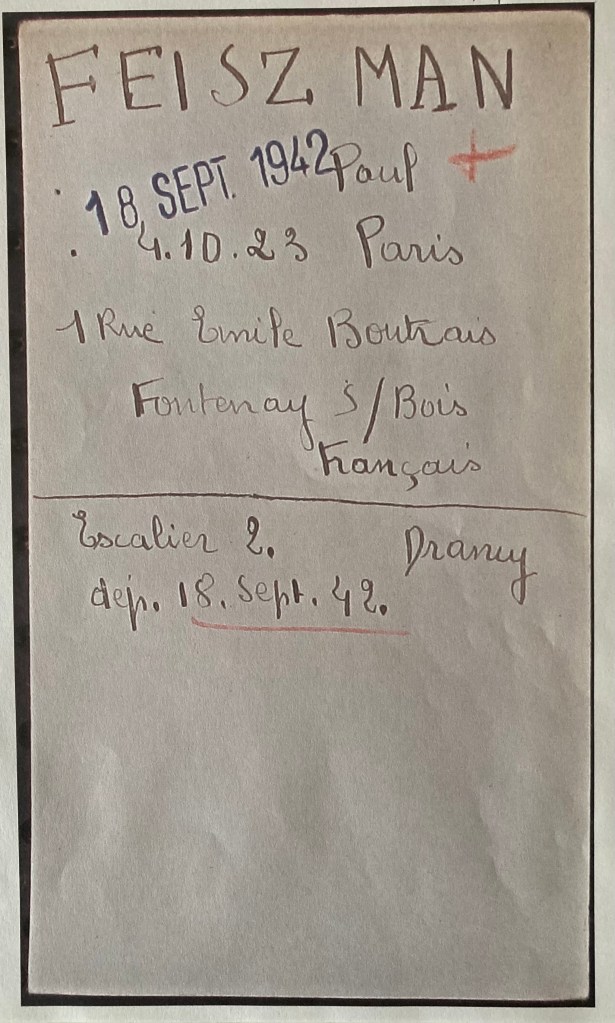 FEISZMAN
18 SEPT. 1942 Paul +
4.10.23 Paris
1 Rue Emile Boutrais
Fontenay s/Bois
Français
Escalier 2. Drancy
dép. 18. Sept. 42.